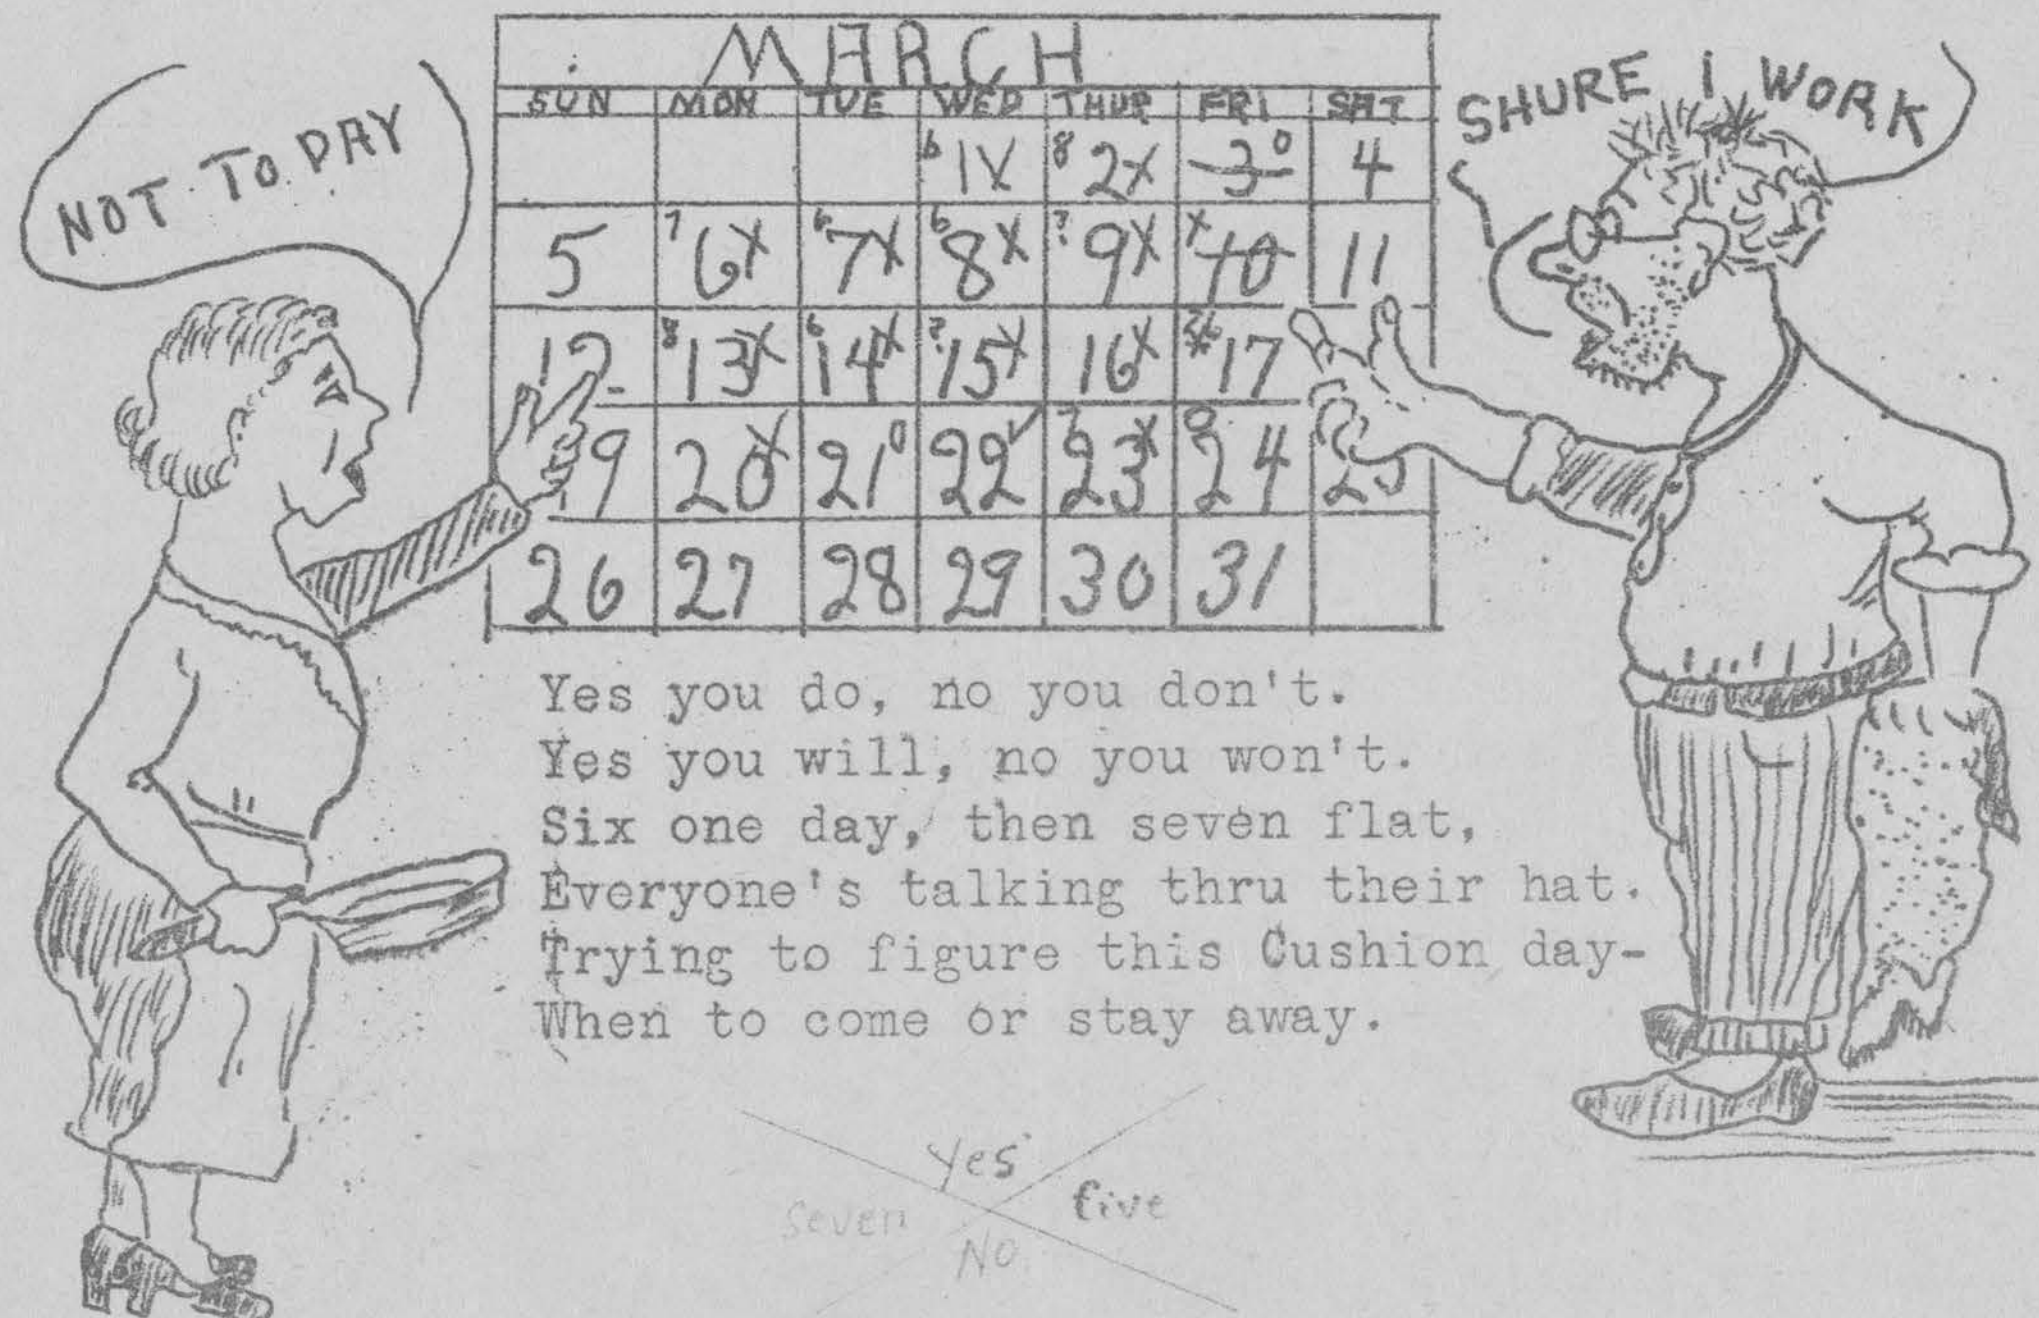 MARCH
SUN MON TUE WED THUR FRI SAT
NOT TO DAY
SHURE I WORK
6 1X 8 2X 3 0 4
5 7 6X 6 7X 6 8X 7 9X X 10 11
12 8 13X 6 14X 7 15X 16X 17
19 20X 21 0 22 7 23X 0 24 25
26 27 28 29 30 31
Yes you do, no you don't.
Yes you will, no you won't.
Six one day, then seven flat,
Everyone's talking thru their hat.
Trying to figure this Cushion day-
When to come or stay away.
Yes
seven five
No